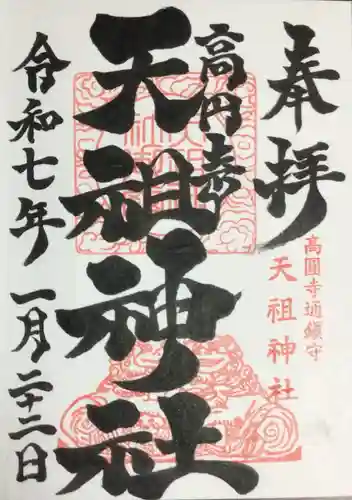 奉拝
高圓寺埆鎮守
天祖神社
高円寺
天祖神社
令和七年 一月二十二日